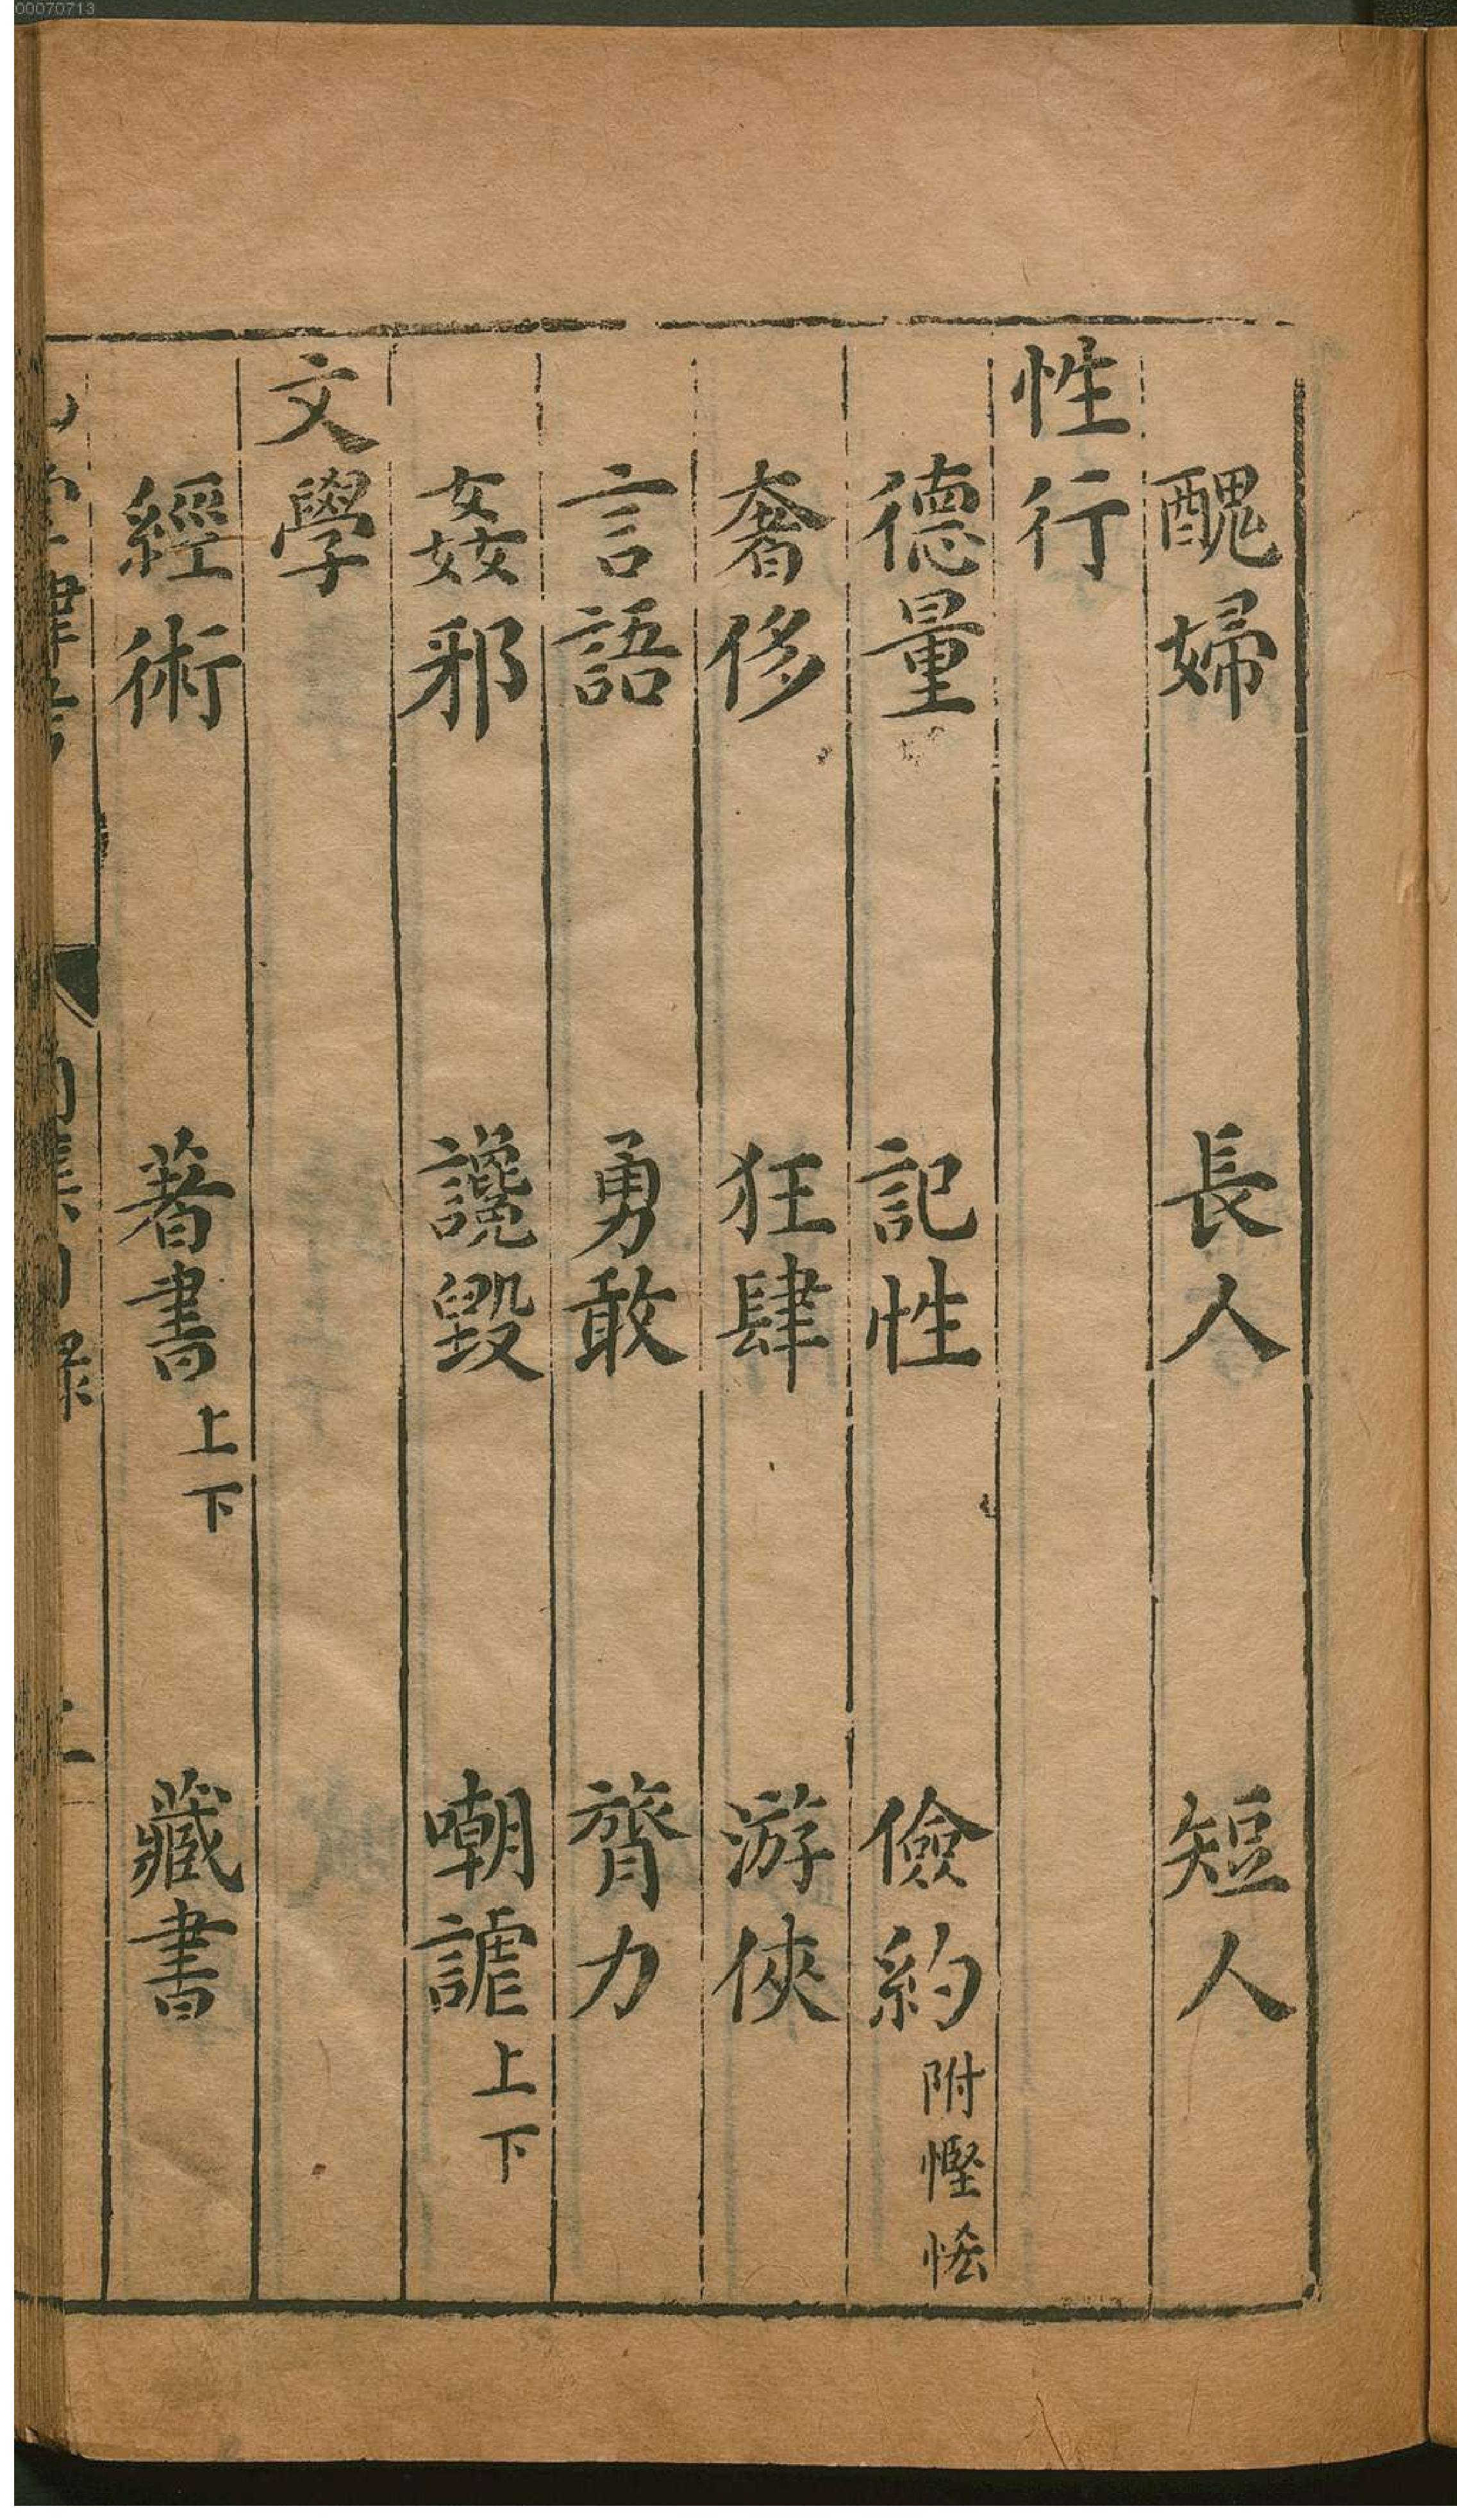 00070713
醜婦 長人 短人
性行
德量 記性 儉約附慳悋
奢侈 狂肆 游俠
言語 勇敢 膂力
姦邪 讒毀 嘲謔上下
文學
經術 著書上下 藏書